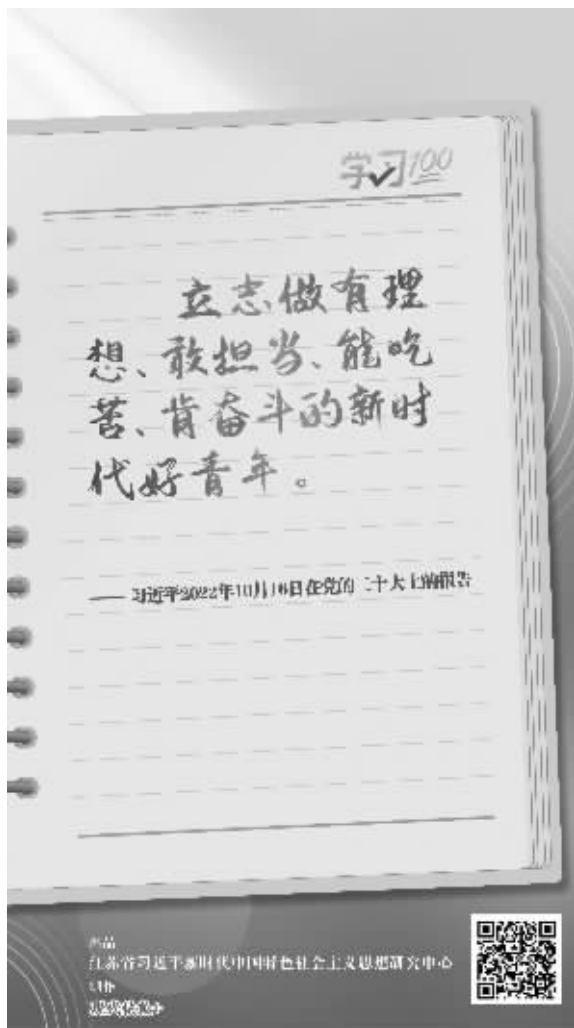 学习100
立志做有理
想、敢担当、能吃
苦、肯奋斗的新时
代好青年。
—— 习近平2022年10月16日在党的二十大上的报告
出品
江苏省习近平新时代中国特色社会主义思想研究中心
制作